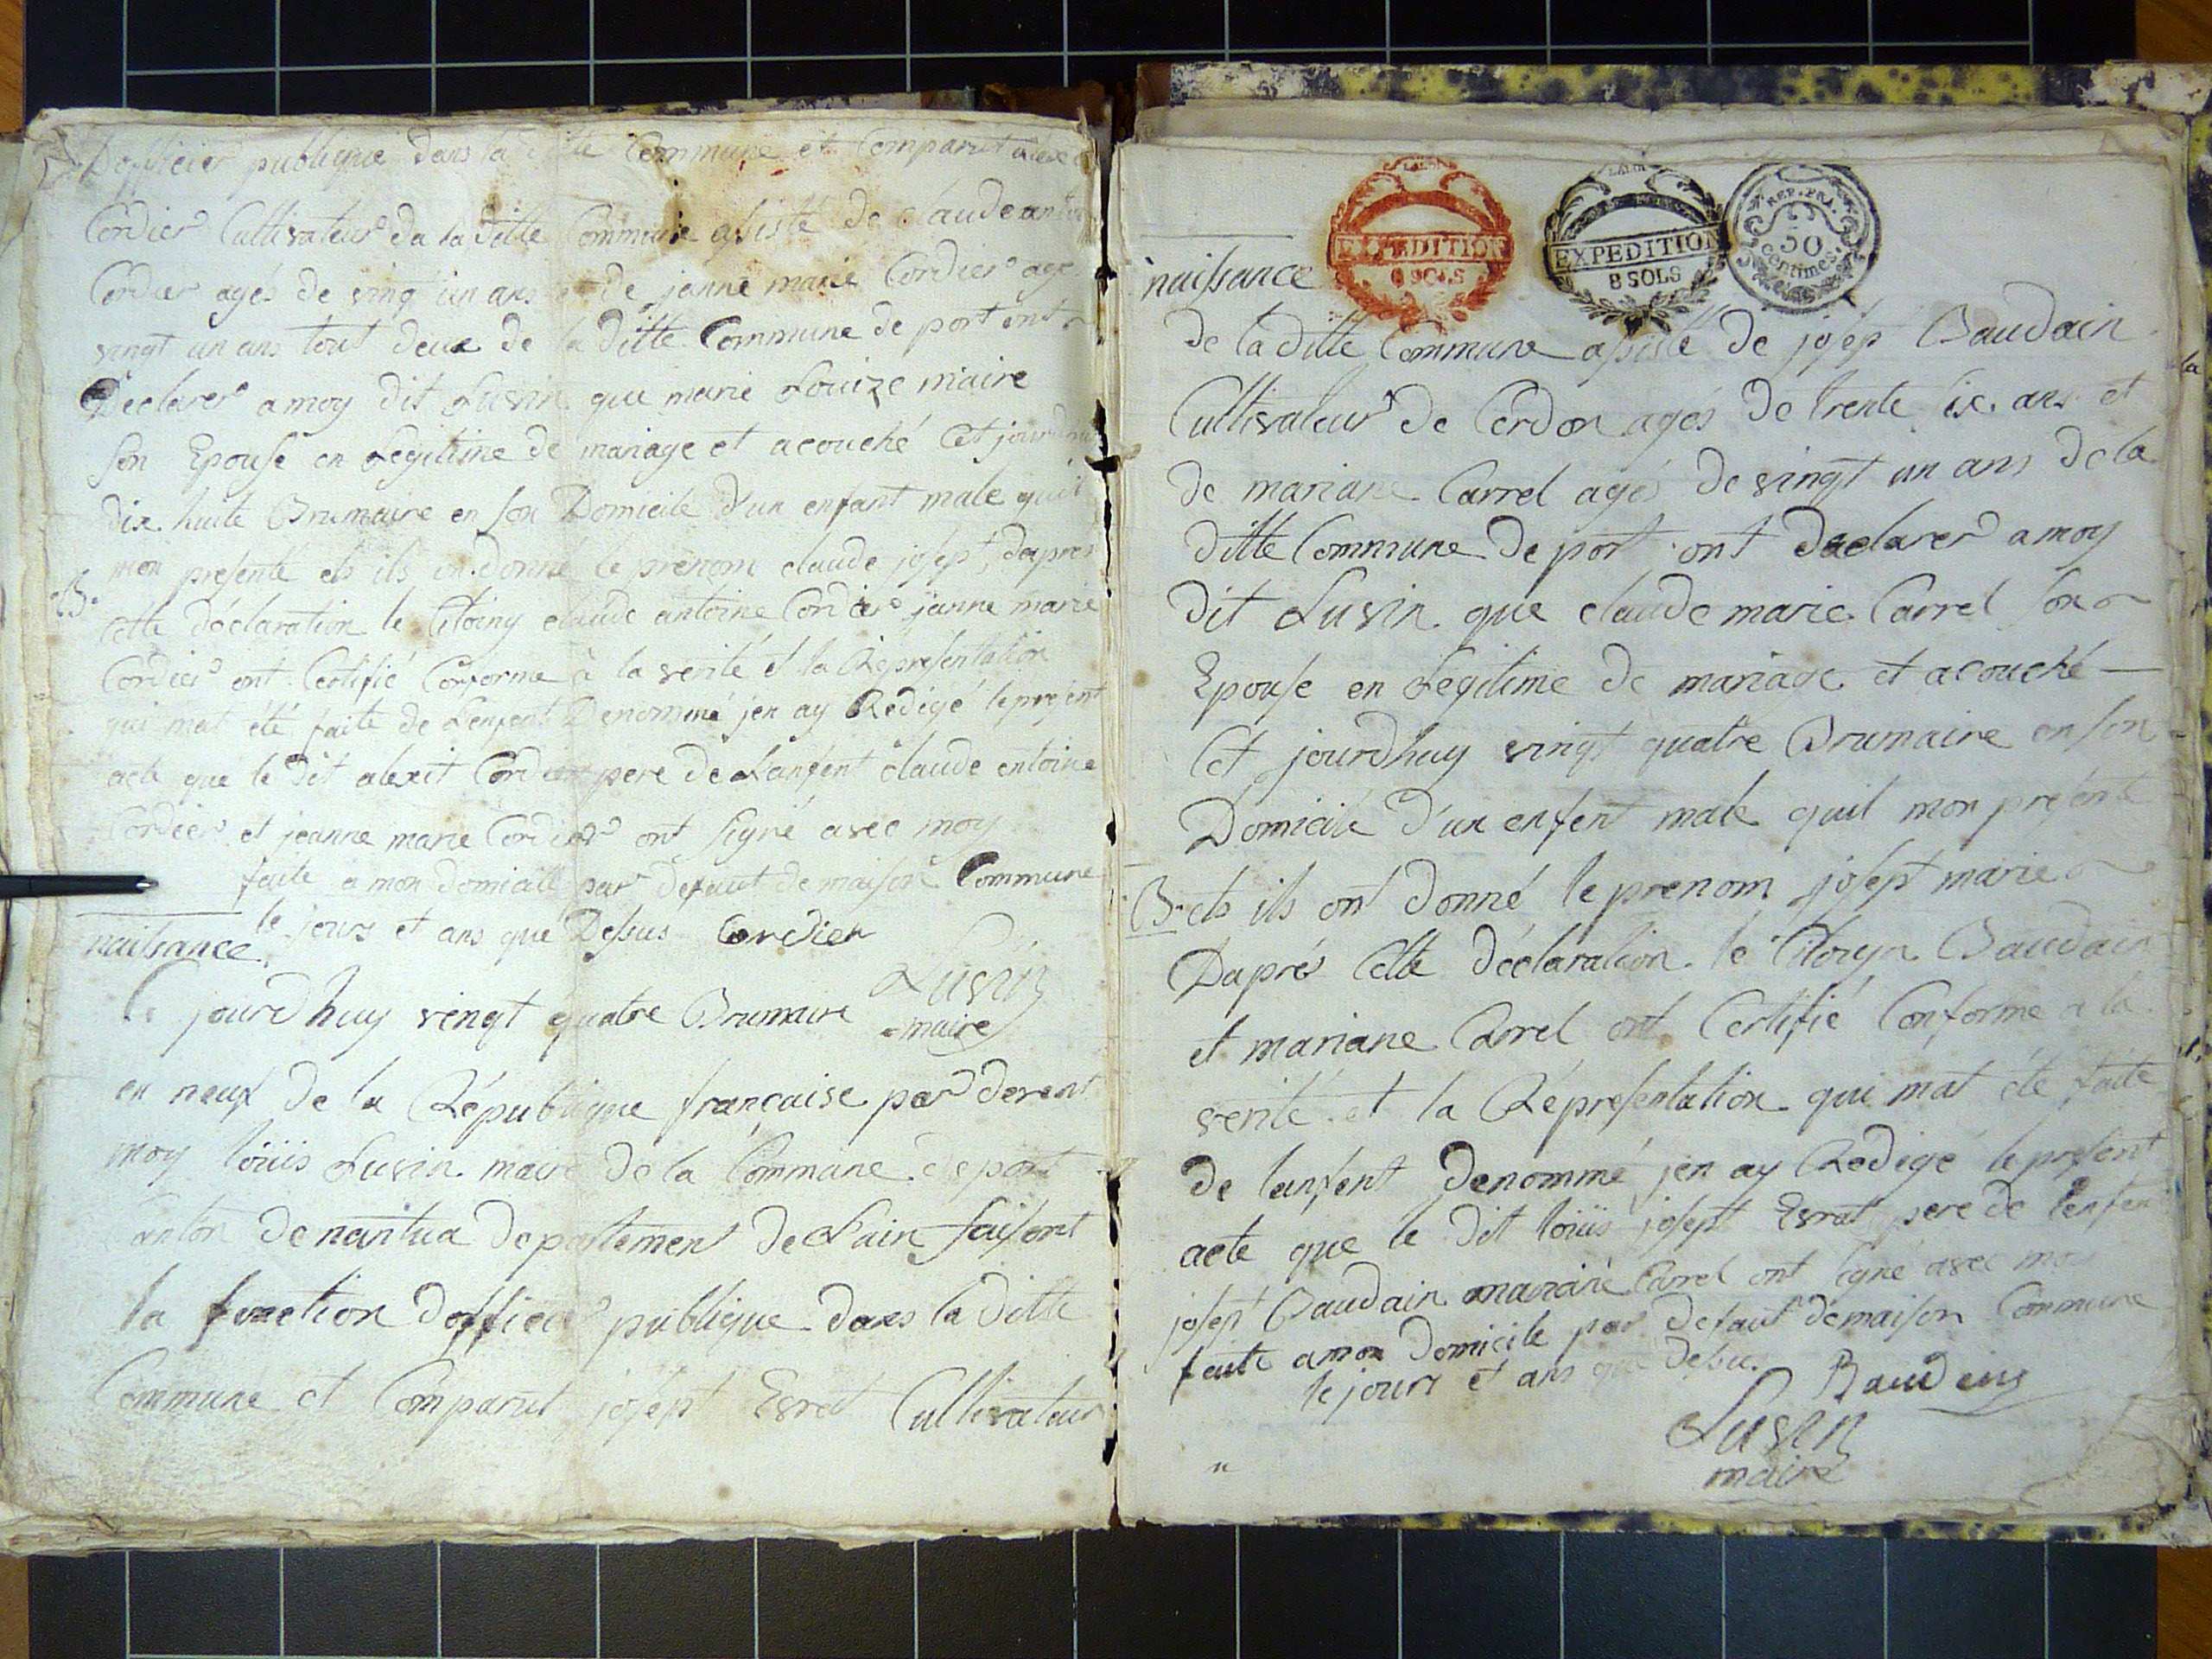 Dofficier publique dans la ditte Commune et Comparut
Cordier Cultivateur da la ditte Commune asisté de claude
Cordier agés de vingt un ans et de janne marie Cordier agé
vingt un ans tout deux de la ditte Commune de port ont
Declarer amoy dit Luvin que marie Louize maire
son Epouse en Legitime de mariage et acouché Cet
dix huite Brumaire en son Domicile d'un enfant male quil
mon presenté ets ils on donné le prenom claude josept, dapres
B.
Cette déclaration le Citoiny claude antoine Cordier janne marie
Cordier ont Certifié Conforme à la verité et la Représentation
qui mat été faite de Lenfent Denommé jen ay Redigé le present
acte que le dit alexit Cordier pere de Lanfent claude entoine
Cordier et jeanne marie Cordier ont signé avec moy
faite a mon domicile par defaut de maison Commune
le jours et ans que Dessus Cordier
Luvin
maire
naissance
jourdhuy vingt quatre Brumaire
en neuf de la République française par devent
moy loüis Luvin maire de la Commune de port
de nantua departement de Lain faisont
la fonction dofficier publique dans la ditte
Commune et Comparut josept Evret Cultivateur
EXPEDITION
8 SOLS
EXPEDITION
8 SOLS
REP. FRA.
50
Centimes.
naissance
de la ditte Commune asisté de josep Baudain
Cultivateur de Cerdon agés de trente six ans et
de mariane Carrel agé de vingt un ans de la
ditte Commune de port ont declarer amoy
dit Luvin que claude marie Carrel son
Epouse en Legitime de mariage et acouché
Cet jourdhuy vingt quatre Brumaire en son
Domicile d'un enfent male quil mon présenté
B. ets ils ont donné le prenom josept marie
Daprés Cette déclaration le Citoyn Baudain
et mariane Carrel ont Certifié Conforme a la
verité et la Répresentation qui mat été faite
de lanfent Denommé jen ay Redigé le present
acte que le dit loüis josept Evrat pere de l'enfent
josept Baudain mariane Carrel ont signé avec moy
faite amon Domicile par defaut de maison Commune
le jours et ans que Dessus
Baudein
Luvin
maire